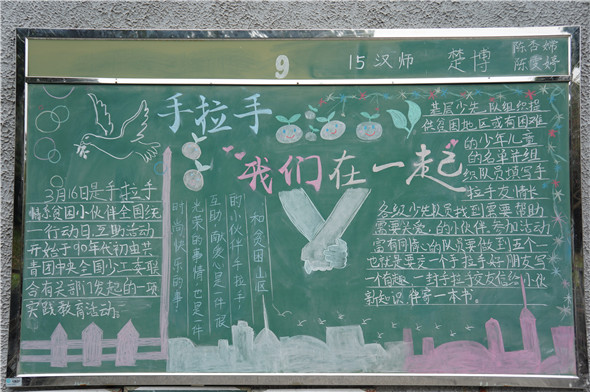 9
15汉师 楚博
陈杏娣
陈雯婷
手拉手
"我们在一起"
3月16是手拉手
帮东贫困小伙伴全国统
一行动日,互助活动
开始于90年代初由共
青团中央全国少工委联
合有关部门发起的一项
实践教育活动。
和贫困山区
的小伙伴手拉手,
互助,献爱心是一件很
光荣的事情,也是一件
时尚快乐的事!
基层少先队组织提
供贫困地区或有困难
的少年儿童
的名单并组
织队员填写手
拉手友情卡
各级少先队员找到需要帮助
需要关爱,的小伙伴,参加活动
富有同情心的队员要做到五个一
也就是要交一个手拉手好朋友写
一句趣,一封手拉手交友信给小伙
新知识,伴寄一本书。